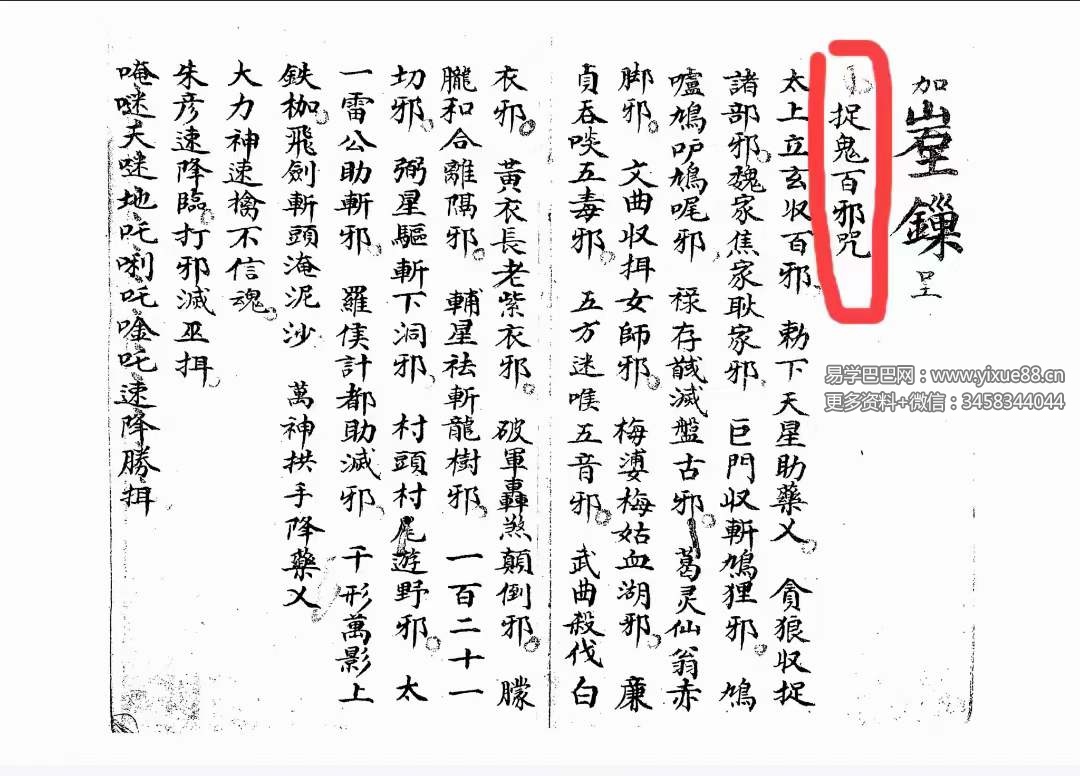 加
鏁
呈
捉鬼百邪咒
太上立玄收百邪 勅下天星助藥乂 貪狼收捉
諸部邪魏家焦家耿家邪 巨門收斬鳩狸邪 鳩
嚧鳩吖鳩呢邪 祿存馘滅盤古邪 葛灵仙翁赤
脚邪 文曲收揖女師邪 梅婆梅姑血湖邪 廉
貞吞啖五毒邪 五方迷喉五音邪 武曲殺伐白
衣邪 黃衣長老紫衣邪 破軍轟煞顛倒邪 朦
朧和合離隅邪 輔星祛斬龍樹邪 一百二十一
切邪 弼星驅斬下洞邪 村頭村尾遊野邪 太
一雷公助斬邪 羅侯計都助滅邪 千形萬影上
鉄枷飛劍斬頭淹泥沙 萬神拱手降藥乂
大力神速擒不信魂
朱彥速降臨打邪滅巫揖
唵咪天咪地吒唎吒唫吒速降勝揖
易学巴巴网：www.yixue88.cn
更多资料+微信：3458344044